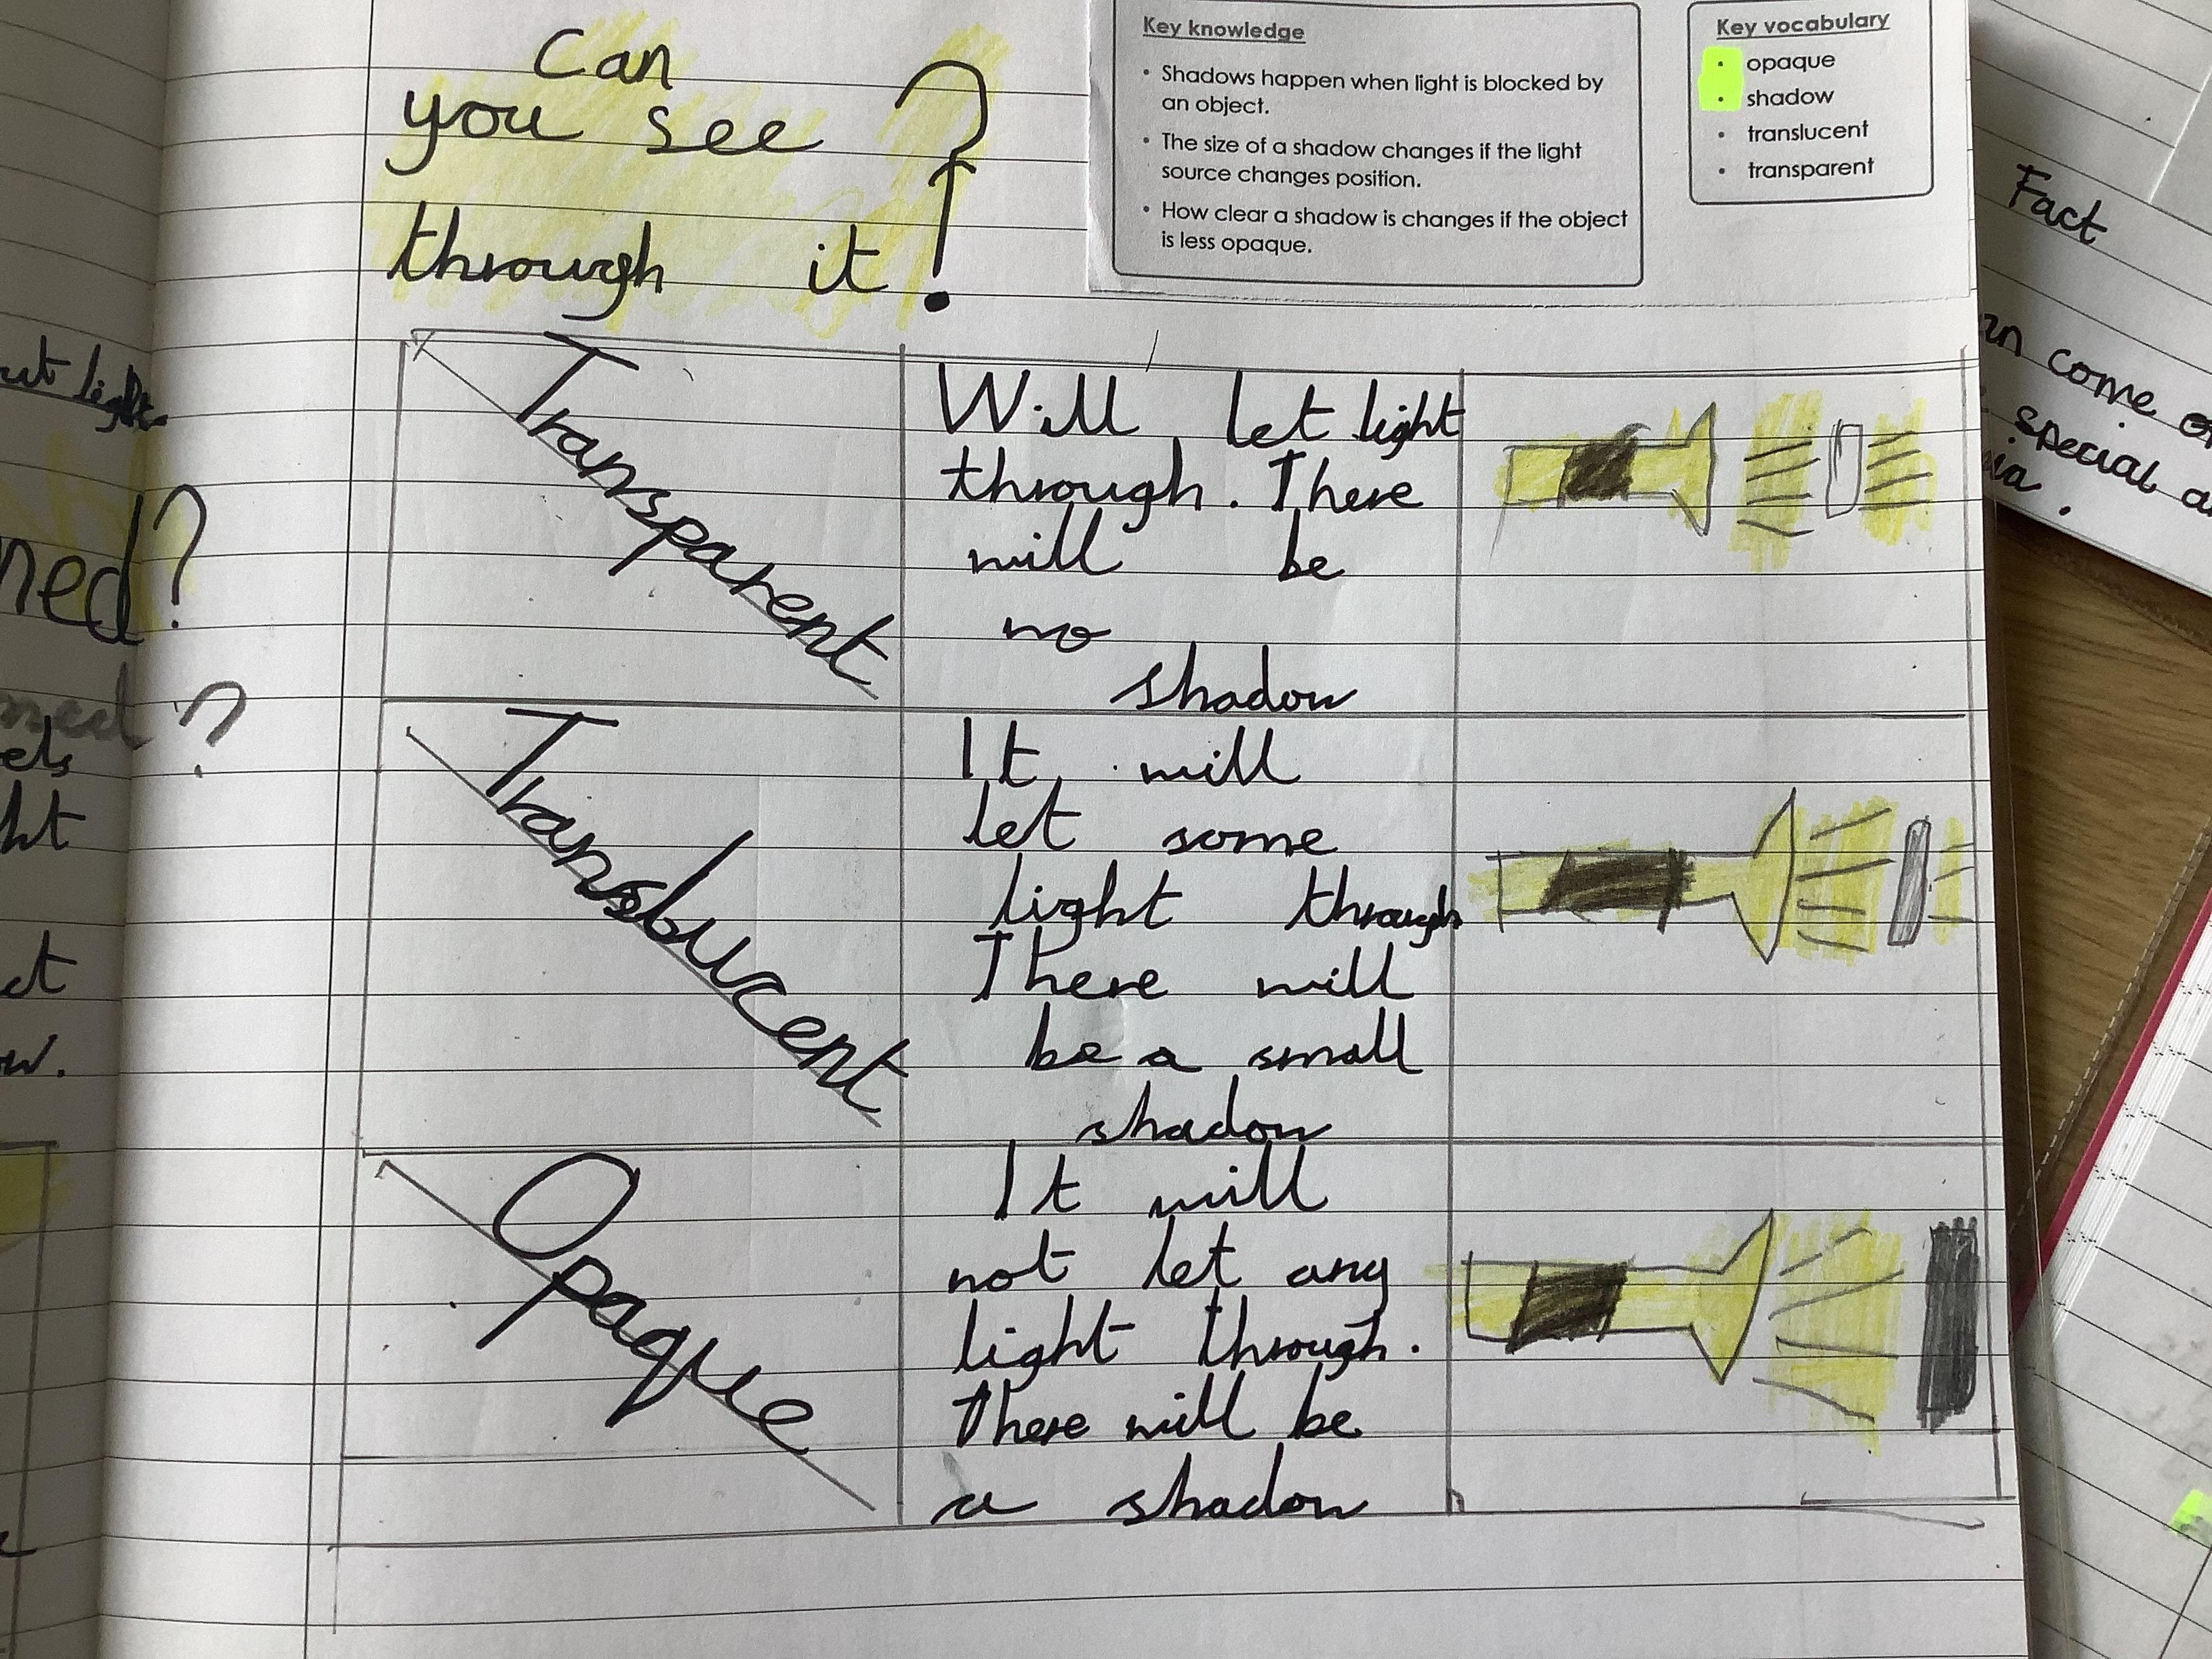 Can
you see
through it ?!
Key knowledge
• Shadows happen when light is blocked by
an object.
• The size of a shadow changes if the light
source changes position.
• How clear a shadow is changes if the object
is less opaque.
Key vocabulary
• opaque
• shadow
• translucent
• transparent
Transparent
Will let light
through. There
will be
no
shadow
Translucent
It will
let some
light through
There will
be a small
shadow
Opaque
It will
not let any
light through.
There will be
a shadow
Fact
come
special
light
?
?